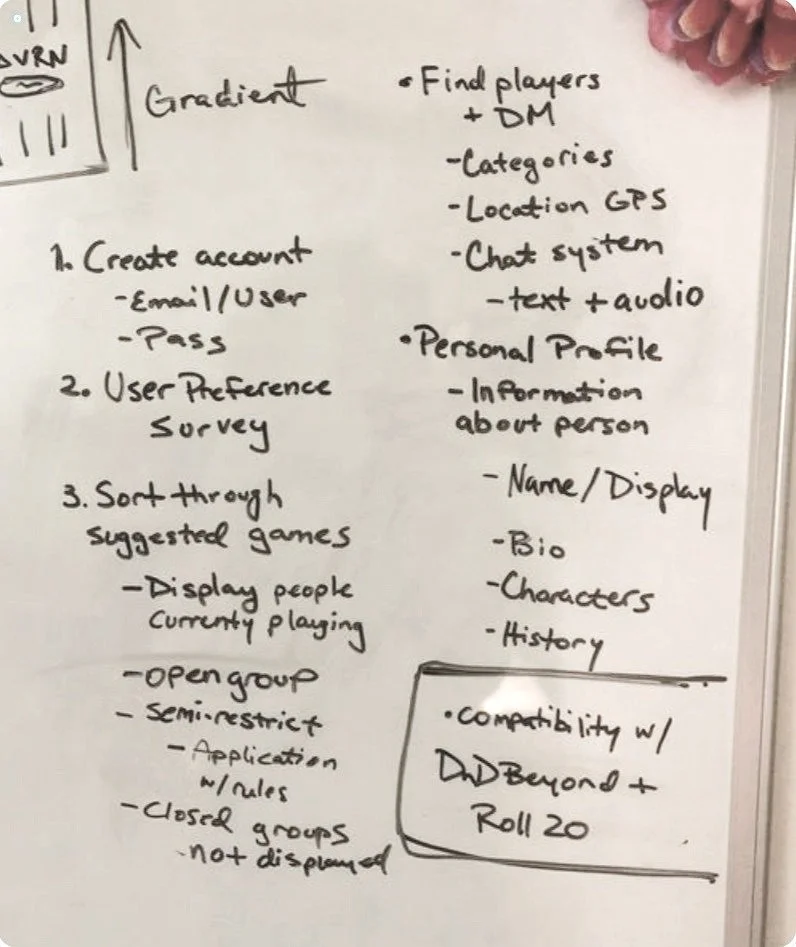 Gradient
1. Create account
-Email/User
-Pass
2. User Preference
Survey
3. Sort through
suggested games
-Display people
Currently playing
-open group
- Semi-restrict
- Application
w/rules
-Closed groups
-not displayed
• Find players
+ DM
-Categories
-Location GPS
-Chat system
-text + audio
• Personal Profile
- Information
about person
- Name/Display
-Bio
-Characters
-History
• Compatibility w/
DnDBeyond +
Roll 20